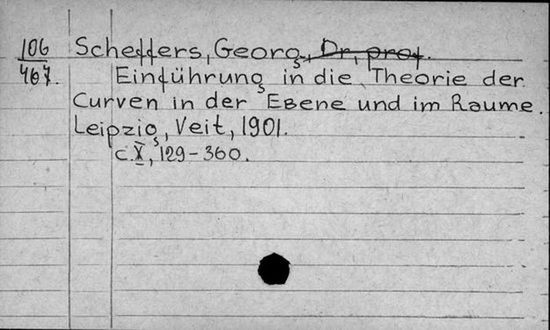 106 Scheffers, Georg, Dr, prof.
467. Einführung in die Theorie der
Curven in der Ebene und im Raume.
Leipzig, Veit, 1901.
C.X, 129-360.